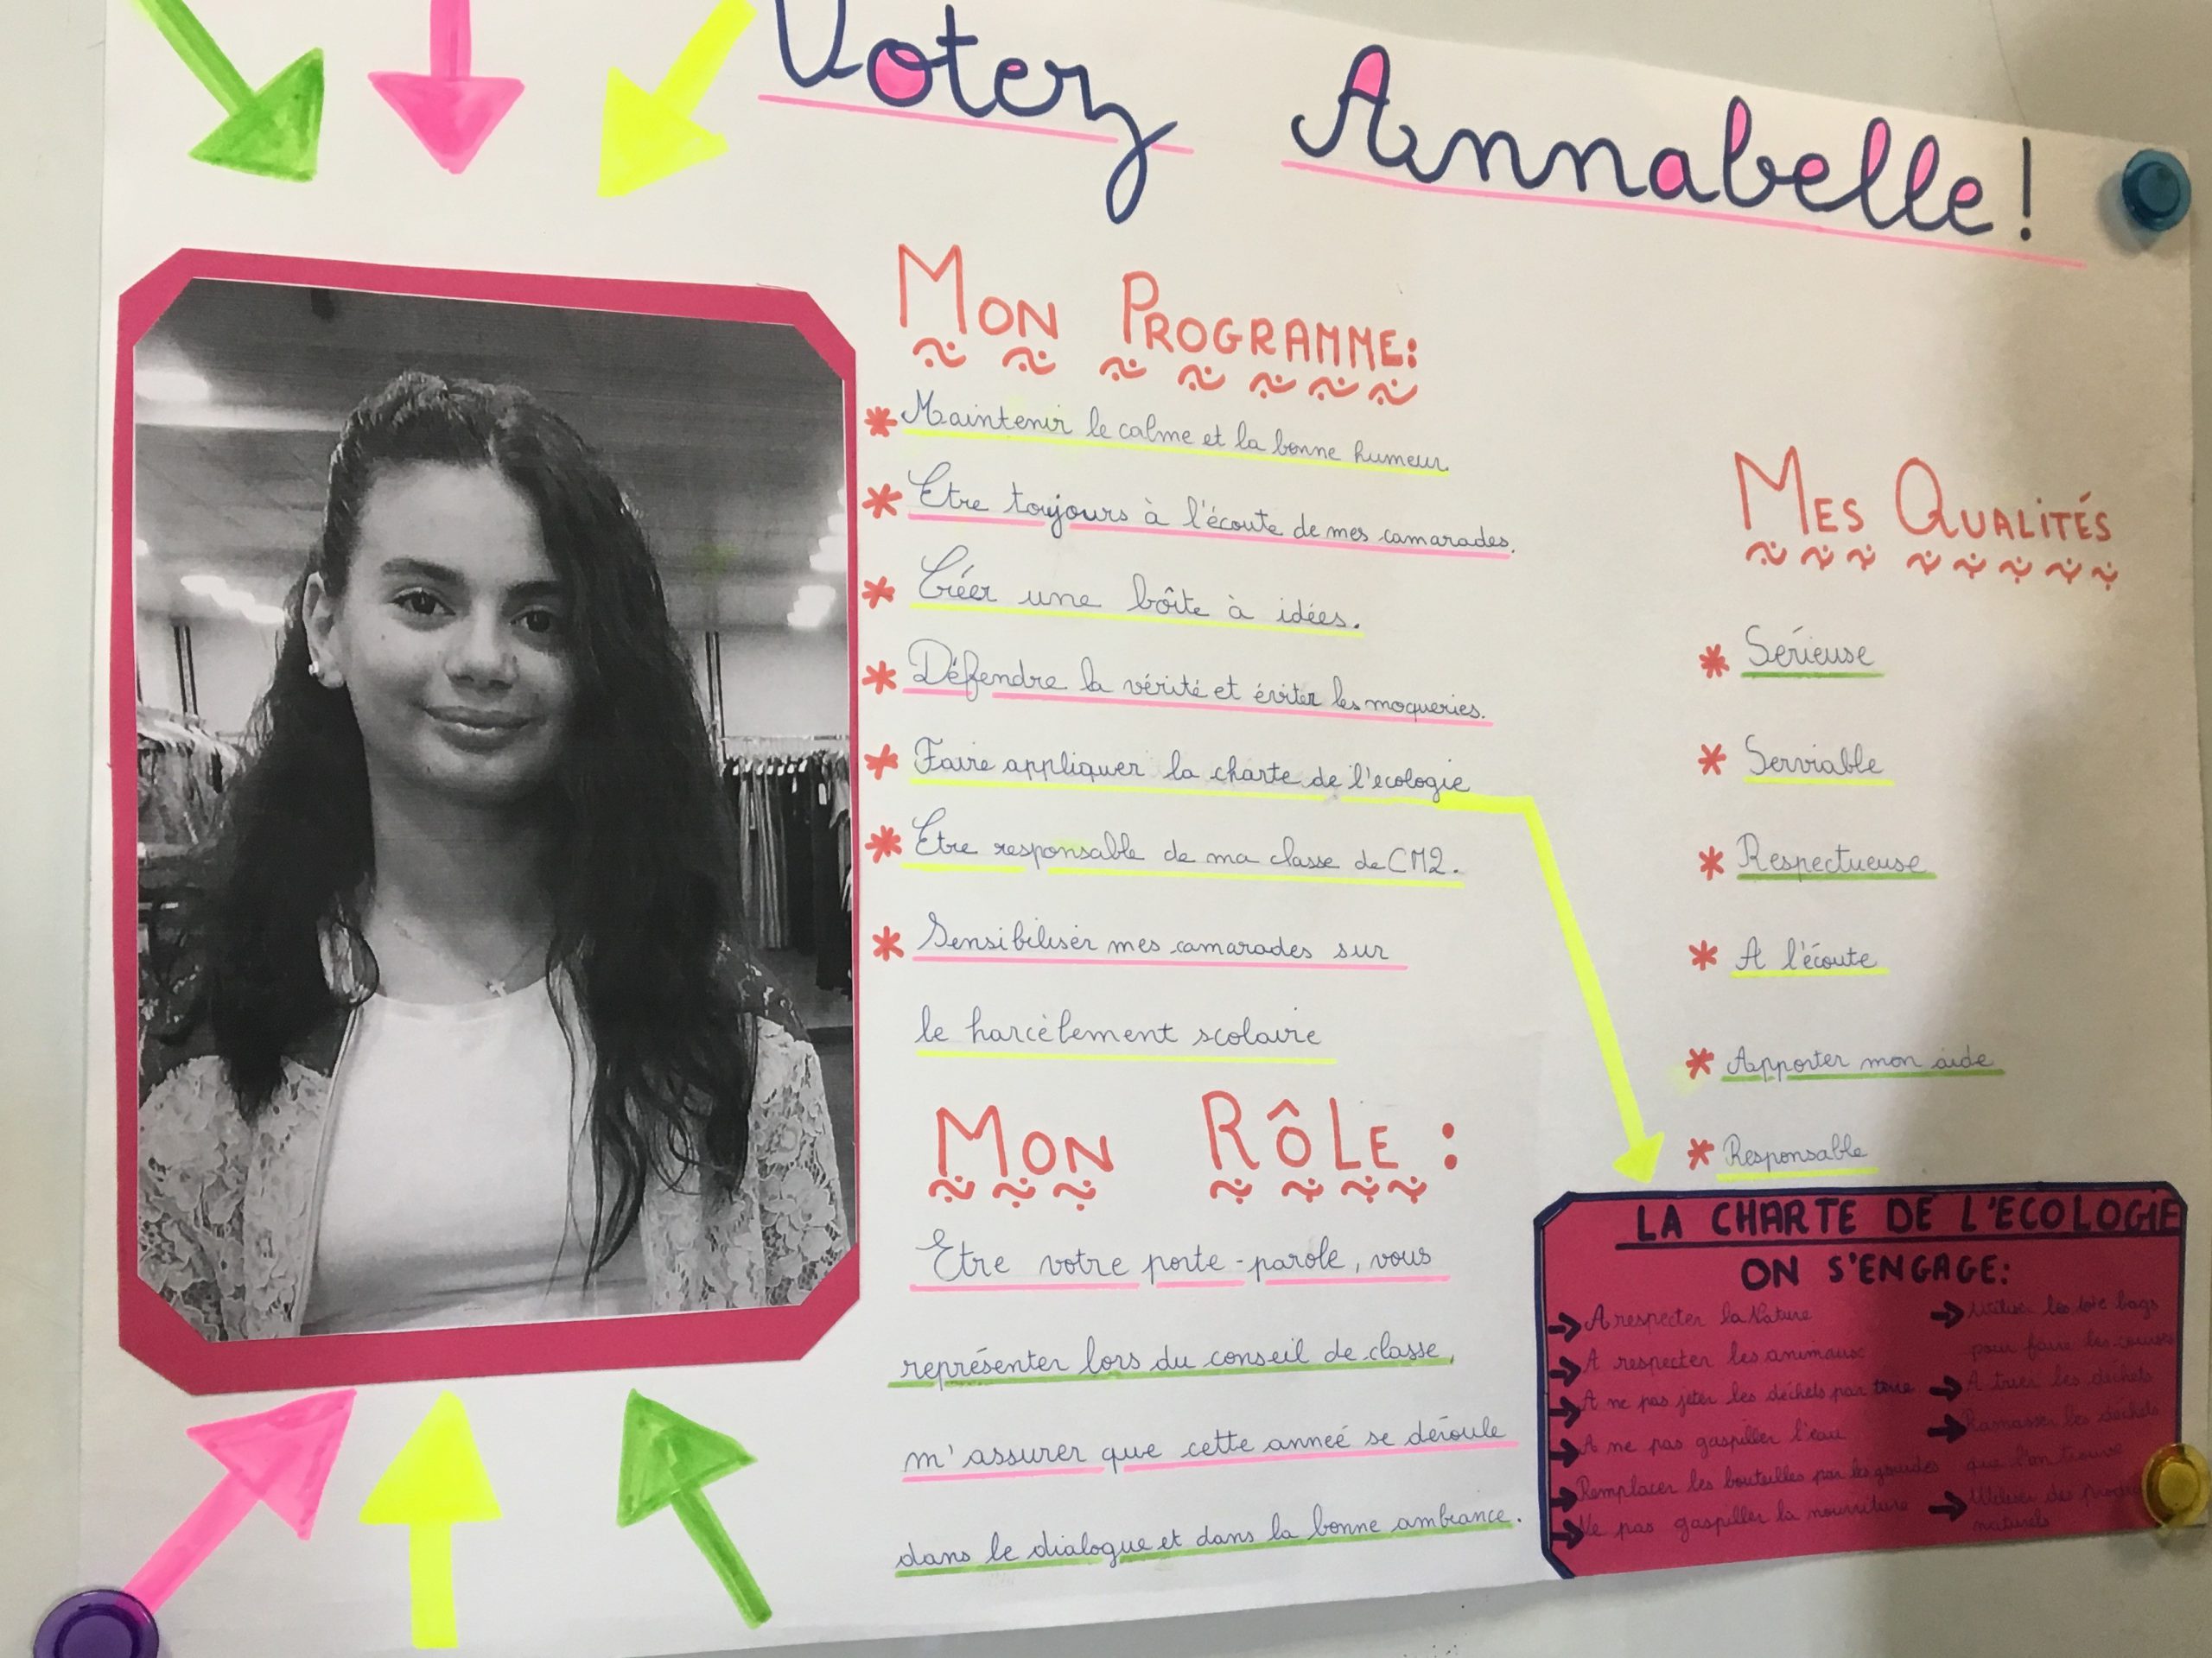 Votez Annabelle!
MON PROGRAMME:
* Maintenir le calme et la bonne humeur.
* Etre toujours à l'écoute de mes camarades.
* Créer une boîte à idées.
* Défendre la vérité et éviter les moqueries.
* Faire appliquer la charte de l'écologie
* Etre responsable de ma classe de CM2.
* Sensibiliser mes camarades sur
le harcèlement scolaire
MON RÔLE :
Etre votre porte-parole, vous
représenter lors du conseil de classe,
m'assurer que cette anneé se déroule
dans le dialogue et dans la bonne ambiance.
MES QUALITÉS
* Sérieuse
* Serviable
* Respectueuse
* A l'écoute
* Apporter mon aide
* Responsable
LA CHARTE DE L'ECOLOGIE
ON S'ENGAGE:
→ A respecter la Nature
→ A respecter les animaux
→ A ne pas jeter les déchets par terre
→ A ne pas gaspiller l'eau
→ Remplacer les bouteilles par les gourdes
→ Ne pas gaspiller la nourriture
→ Utiliser les tote bags
pour faire les courses
→ A trier les déchets
→ Ramasser les déchets
que l'on trouve
→ Utiliser des
naturels